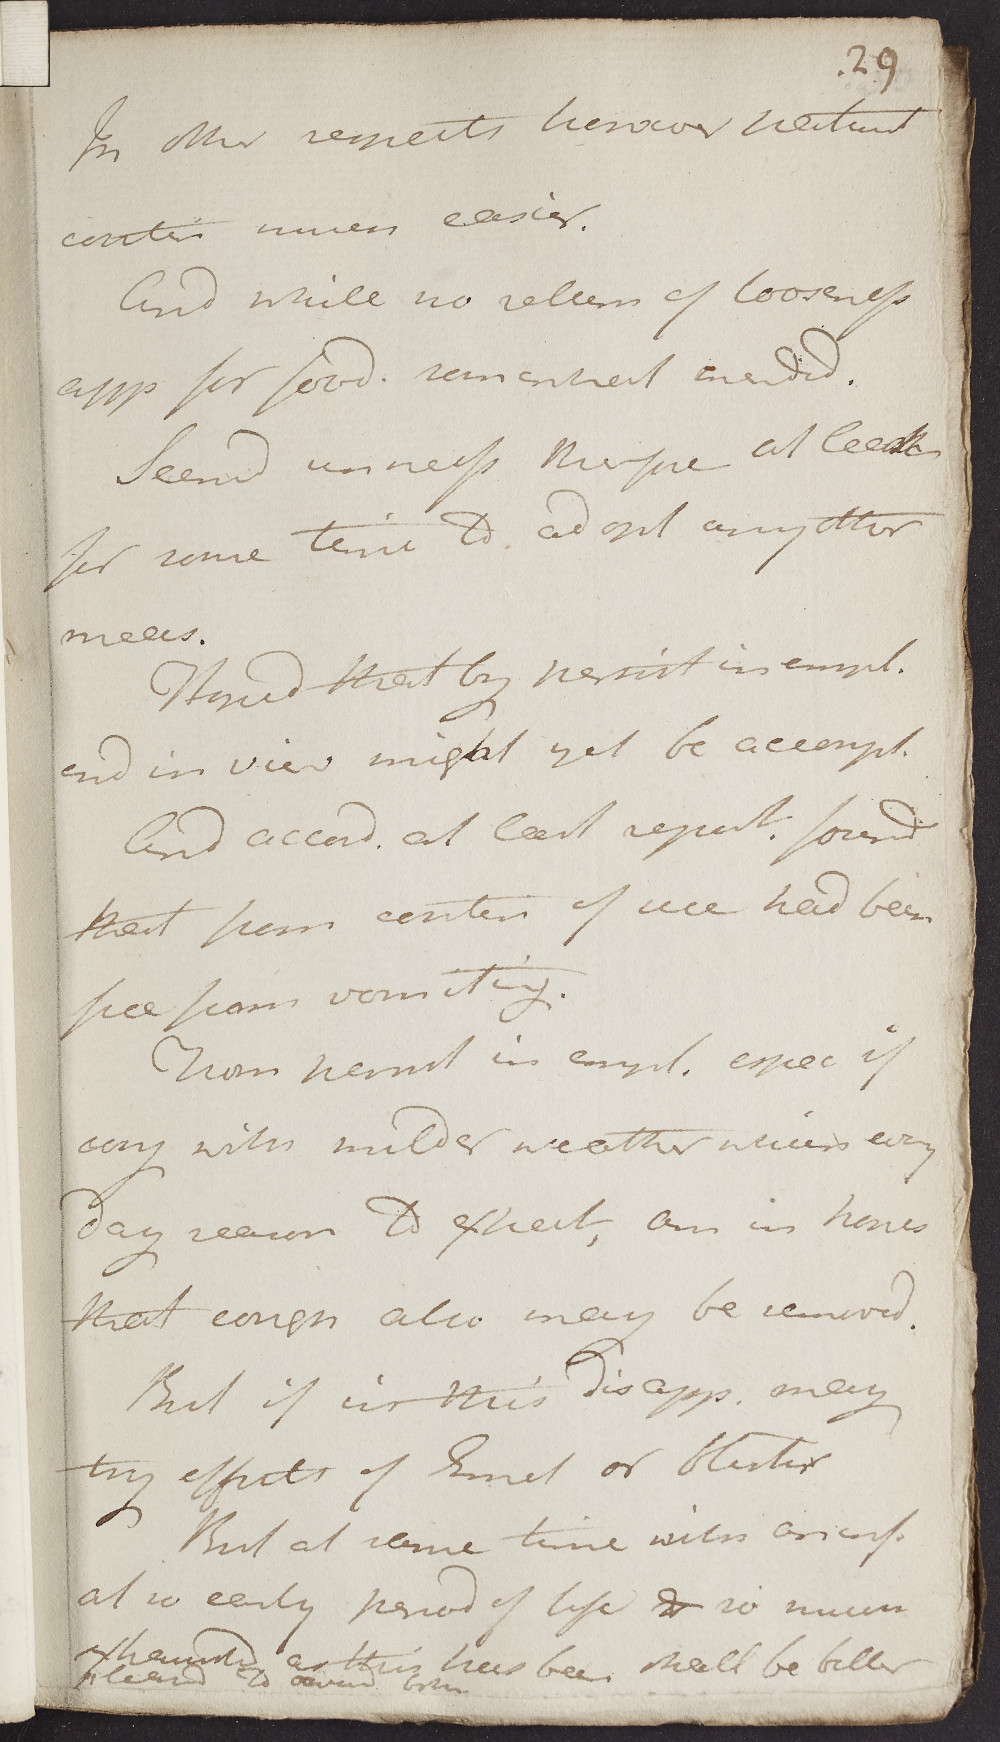 .29
In other respects however patient
contin much easier.
And while no return of looseness
app for food. somewhat mended.
Seemd unness therfore at least
for some time to adopt any other
meas.
Hoped that by persist in empl.
end in view might yet be accompl.
And accord. at last report. found
that from contin of use had been
free from vomiting.
From persist in empl. espec if
conj with milder weather which every
day reason to expect, am in hopes
that cough also may be removed.
But if in this disapp. may
try effects of Emet or blister
But at same time with an inf.
at so early period of life & so much
exhausted as this has been shall be better
pleased to avoid both